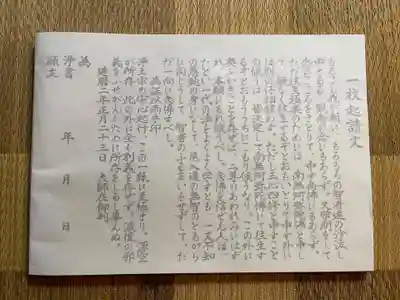 一枚起請文
もろこし我が朝に、もろもろの智者達の沙汰し
申さるる、観念の念にもあらず。又学問をして
念の心をさとりて、申す念佛にもあらず。
ただ往生極楽のためには、南無阿弥陀佛と申し
て、疑なく往生するぞとおもいとりて申す外に
は別の仔細候わず。ただし三心四修と申すこと
の候うは、皆決定して南無阿弥陀佛にて往生す
るぞとおもううちにこもり候うなり。この外に
奥ふかきことを存ぜば、二尊のあわれみにはず
れ、本願にもれ候うべし。念佛を信ぜん人は、
たとい一代の法をよくよく学すとも、一文不知
の愚鈍の身になして、尼入道の無智のともがら
に同じうして、智者のふるまいをせずして、た
だ一向に念佛すべし。
為證以両手印
浄土宗の安心起行、この一紙に至極せり。源空
が所存、此の外に全く別義を存ぜず。滅後の邪
義をふせがんがために所存をしるし畢んぬ。
建暦二年正月二十三日 大師在御判
為
浄書 年 月 日
願主